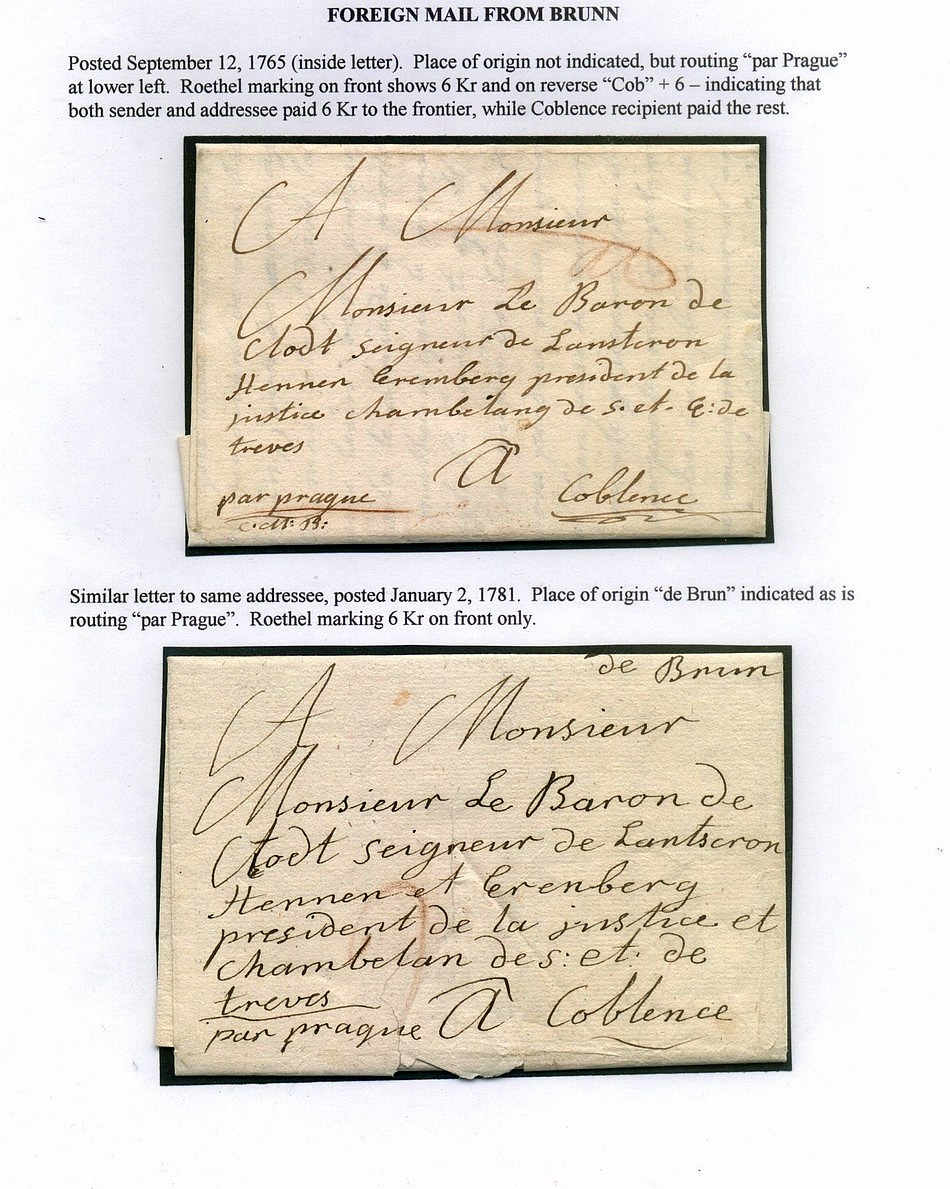 FOREIGN MAIL FROM BRUNN
Posted September 12, 1765 (inside letter). Place of origin not indicated, but routing “par Prague”
at lower left. Roethel marking on front shows 6 Kr and on reverse “Cob” + 6 – indicating that
both sender and addressee paid 6 Kr to the frontier, while Coblence recipient paid the rest.
A Monsieur
Monsieur Le Baron de
Clodt seigneur de Lanstcron
Hennen Eremberg president de la
justice chambelang de s. et. E: de
treves
A
par prague
Coblence
Similar letter to same addressee, posted January 2, 1781. Place of origin “de Brun” indicated as is
routing “par Prague”. Roethel marking 6 Kr on front only.
de Brun
A Monsieur
Monsieur Le Baron de
Clodt seigneur de Lantscron
Hennen et Erenberg
president de la justice et
chambelan de s: et. de
treves
par prague A Coblence